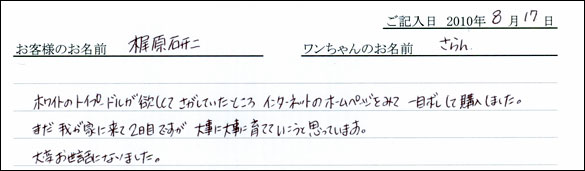 ご記入日 2010年 8月 17日
お客様のお名前 梶原研二 ワンちゃんのお名前 さらん
ホワイトのトイプードルが欲しくて さがしていたところ インターネットのホームページをみて 一目ボレして購入しました。
まだ我が家に来て2日目ですが 大事に大事に育てていこうと思っています。
大変お世話になりました。